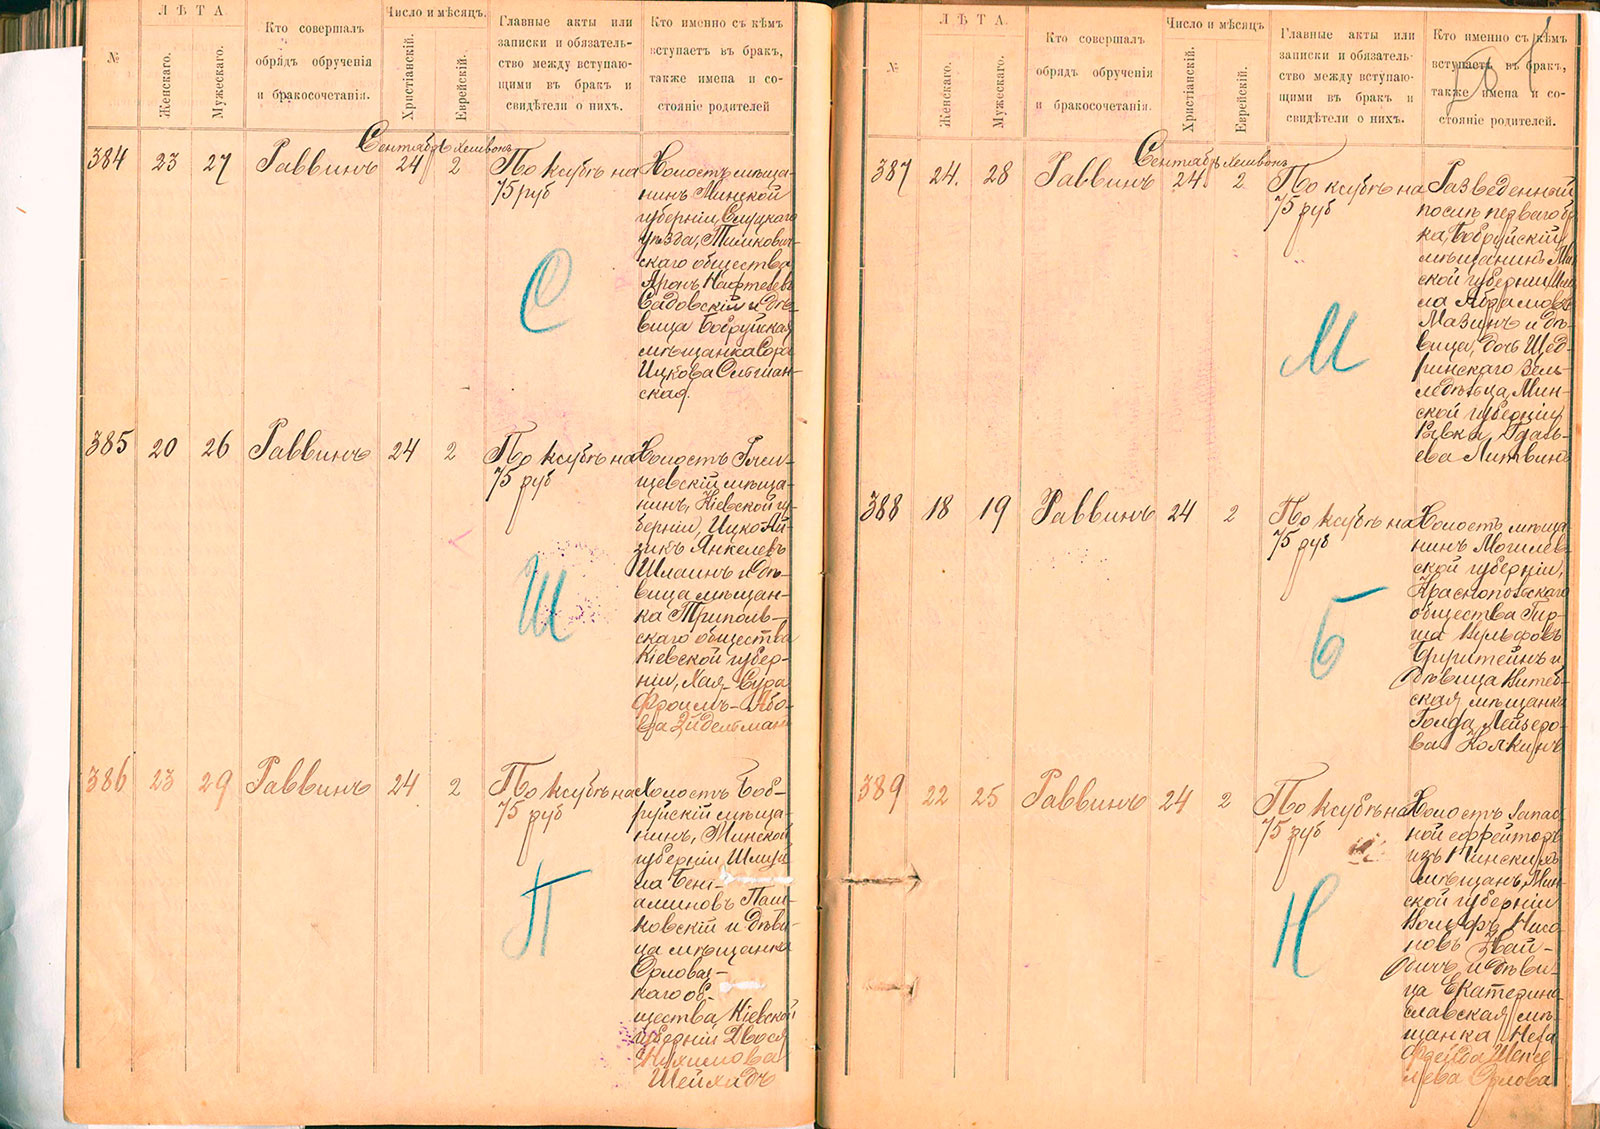 №
ЛѢТА.
Женскаго.
Мужескаго.
Кто совершалъ
обрядъ обрученія
и бракосочетанія.
Число и мѣсяцъ.
Христіанскій.
Еврейскій.
Главные акты или
записки и обязатель-
ство между вступаю-
щими въ бракъ и
свидѣтели о нихъ.
Кто именно съ кѣмъ
вступаетъ въ бракъ,
также имена и со-
стояніе родителей
Сентябрь Хешвонъ
384 23 27 Раввинъ 24 2
По ксубѣ на
75 руб
С
Холостъ мѣща-
нинъ Минской
губерніи, Слуцкаго
уѣзда, Тимкович-
скаго общества
Аронъ Нафтелевъ
Садовскій и дѣ-
вица Бобруйская
мѣщанка Сора
Ицкова
ская.
385 20 26 Раввинъ 24 2
По ксубѣ на
75 руб
Ш
Холостъ
щевскій мѣща-
нинъ, Кіевской гу-
берніи, Ицко Ай-
зикъ Янкелевъ
Шлаинъ и дѣ-
вица мѣщан-
ка Триполь-
скаго общества
Кіевской губер-
ніи, Хая-Сура
Фроимъ-Або-
ва Эйдельманъ
386 23 29 Раввинъ 24 2
По ксубѣ на
75 руб
П
Холостъ Боб-
руйскій мѣща-
нинъ, Минской
губерніи
аминовъ Паш-
ковскій и дѣви-
ца мѣщанка
каго об-
щества, Кіевской
губерніи Двося
Нухимова
Шейхидъ
№
ЛѢТА.
Женскаго.
Мужескаго.
Кто совершалъ
обрядъ обрученія
и бракосочетанія.
Число и мѣсяцъ
Христіанскій.
Еврейскій.
Главные акты или
записки и обязатель-
ство между вступаю-
щими въ бракъ и
свидѣтели о нихъ.
Кто именно съ кѣмъ
вступаетъ въ бракъ,
также имена и со-
стояніе родителей.
Сентябрь Хешвонъ
387 24. 28 Раввинъ 24 2
По ксубѣ на
75 руб
М
Разведенный
послѣ перваго бра
ка, Бобруйскій
мѣщанинъ Мин
ской губерніи
Абрамовъ
Мазинъ и дѣ-
вица, дочь Щед-
ринскаго земле-
дѣльца, Мин-
ской губерніи
Ривка
ева Литвинъ
388 18 19 Раввинъ 24 2
По ксубѣ на
75 руб
Б
Холостъ мѣща
нинъ Могилев-
ской губерніи,
Краснопольскаго
общества Гир-
ша Вульфовъ
и
дѣвица Витеб-
ская мѣщанка
Голда Лейзеро-
ва Колкинъ
389 22 25 Раввинъ 24 2
По ксубѣ на
75 руб
Н
Холостъ запас-
ной ефрейторъ
изъ Минскихъ
мѣщанъ, Мин-
ской губерніи
Вольфъ Ниса-
новъ
и дѣви-
ца Екатерино-
славская мѣ-
щанка Неха
Фрейда
лева Орлова